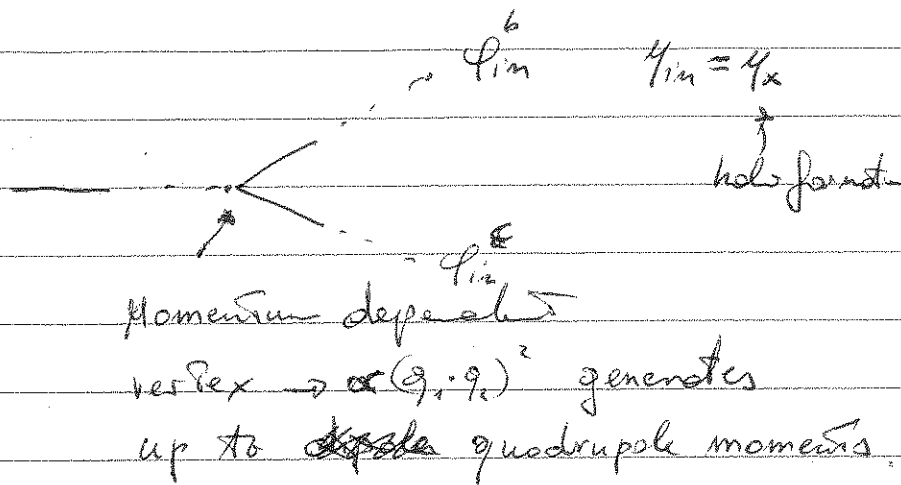 φ_in^b η_in = η_x
halo formation
φ_in^c
Momentum dependent
vertex → α(q₁·q₂)² generates
up to quadrupole moments.